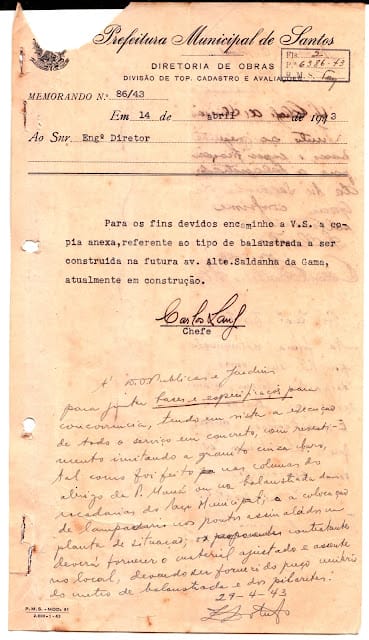 Prefeitura Municipal de Santos
DIRETORIA DE OBRAS
DIVISÃO DE TOP. CADASTRO E AVALIAÇÕES
Fls. 2
P.º 6386-43
P. M. S.
MEMORANDO N.º 86/43
Em 14 de abril de 1943
Ao Snr. Engº Diretor
Para os fins devidos encaminho a V.S. a co-
pia anexa,referente ao tipo de balaustrada a ser
construida na futura av. Alte.Saldanha da Gama,
atualmente em construção.
Carlos Lang
Chefe
A' D.O.Publicas e Jardins
para juntar bases e especificações para
concorrencia, tendo em vista a execução
de todo o serviço em concreto, com revesti-
mento imitando a granito cinza claro,
tal como foi feito nas colunas do
abrigo da P. Mauá ou na balaustrada das
do Paço Municipal; a colocação
de lampadario nos pontos assinalados na
planta de situação; os contratante
deverá fornecer o material ajustado e assente
no local, devendo ser fornecido preço unitario
do metro de balaustrada e dos pilaretes.
29-4-43
P. M. S. - MOD. 81